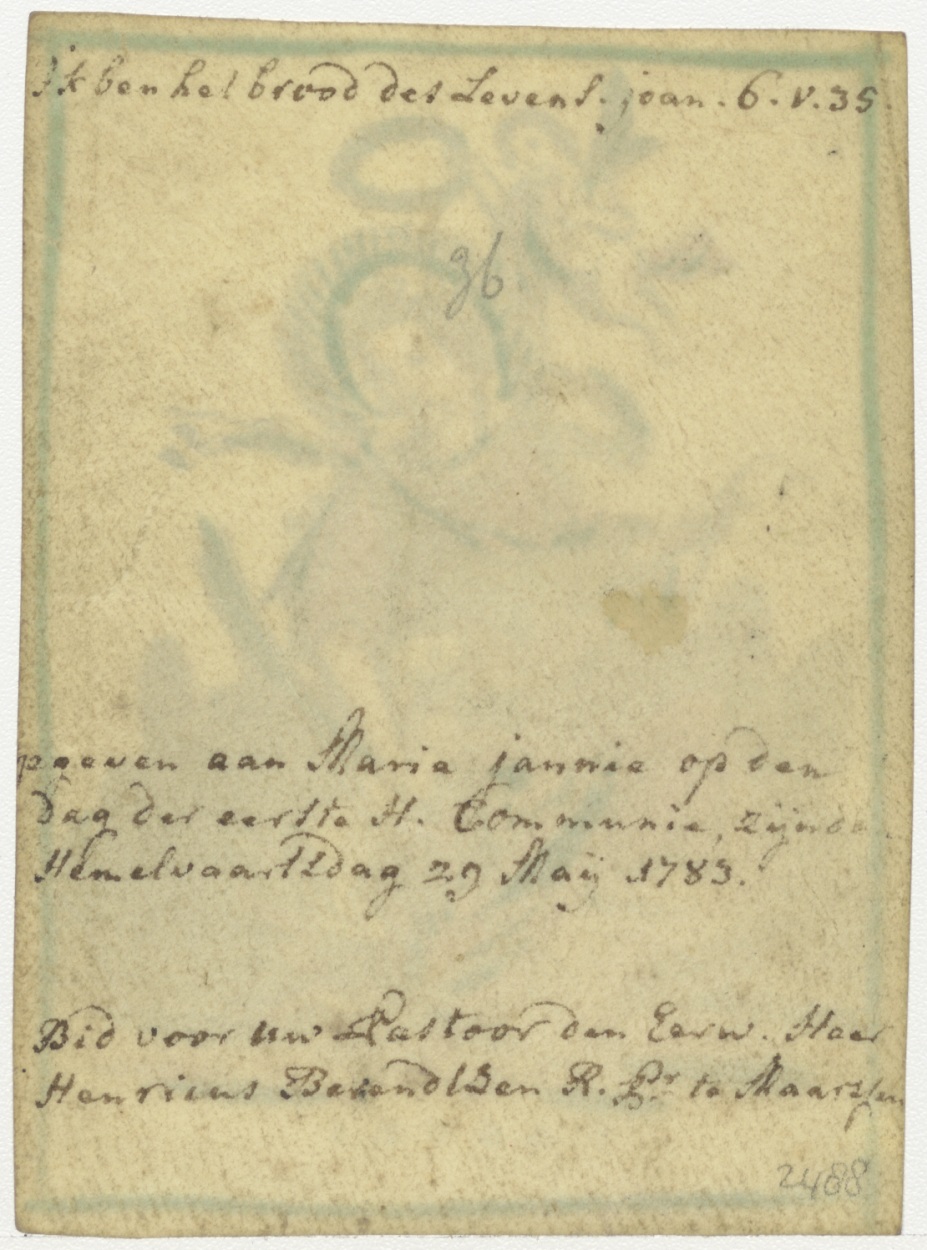 Ik ben het brood des Levens. joan. 6. v. 35.
36
pgeven aan Maria jannie op den
Dag der eerste H. Communie, zijnde
Hemelvaartsdag 29 Maÿ 1783.
Bid voor uw Pastoor den Eerw. Heer
Henricus Berendtsen R. Pr te Maarssen
2488